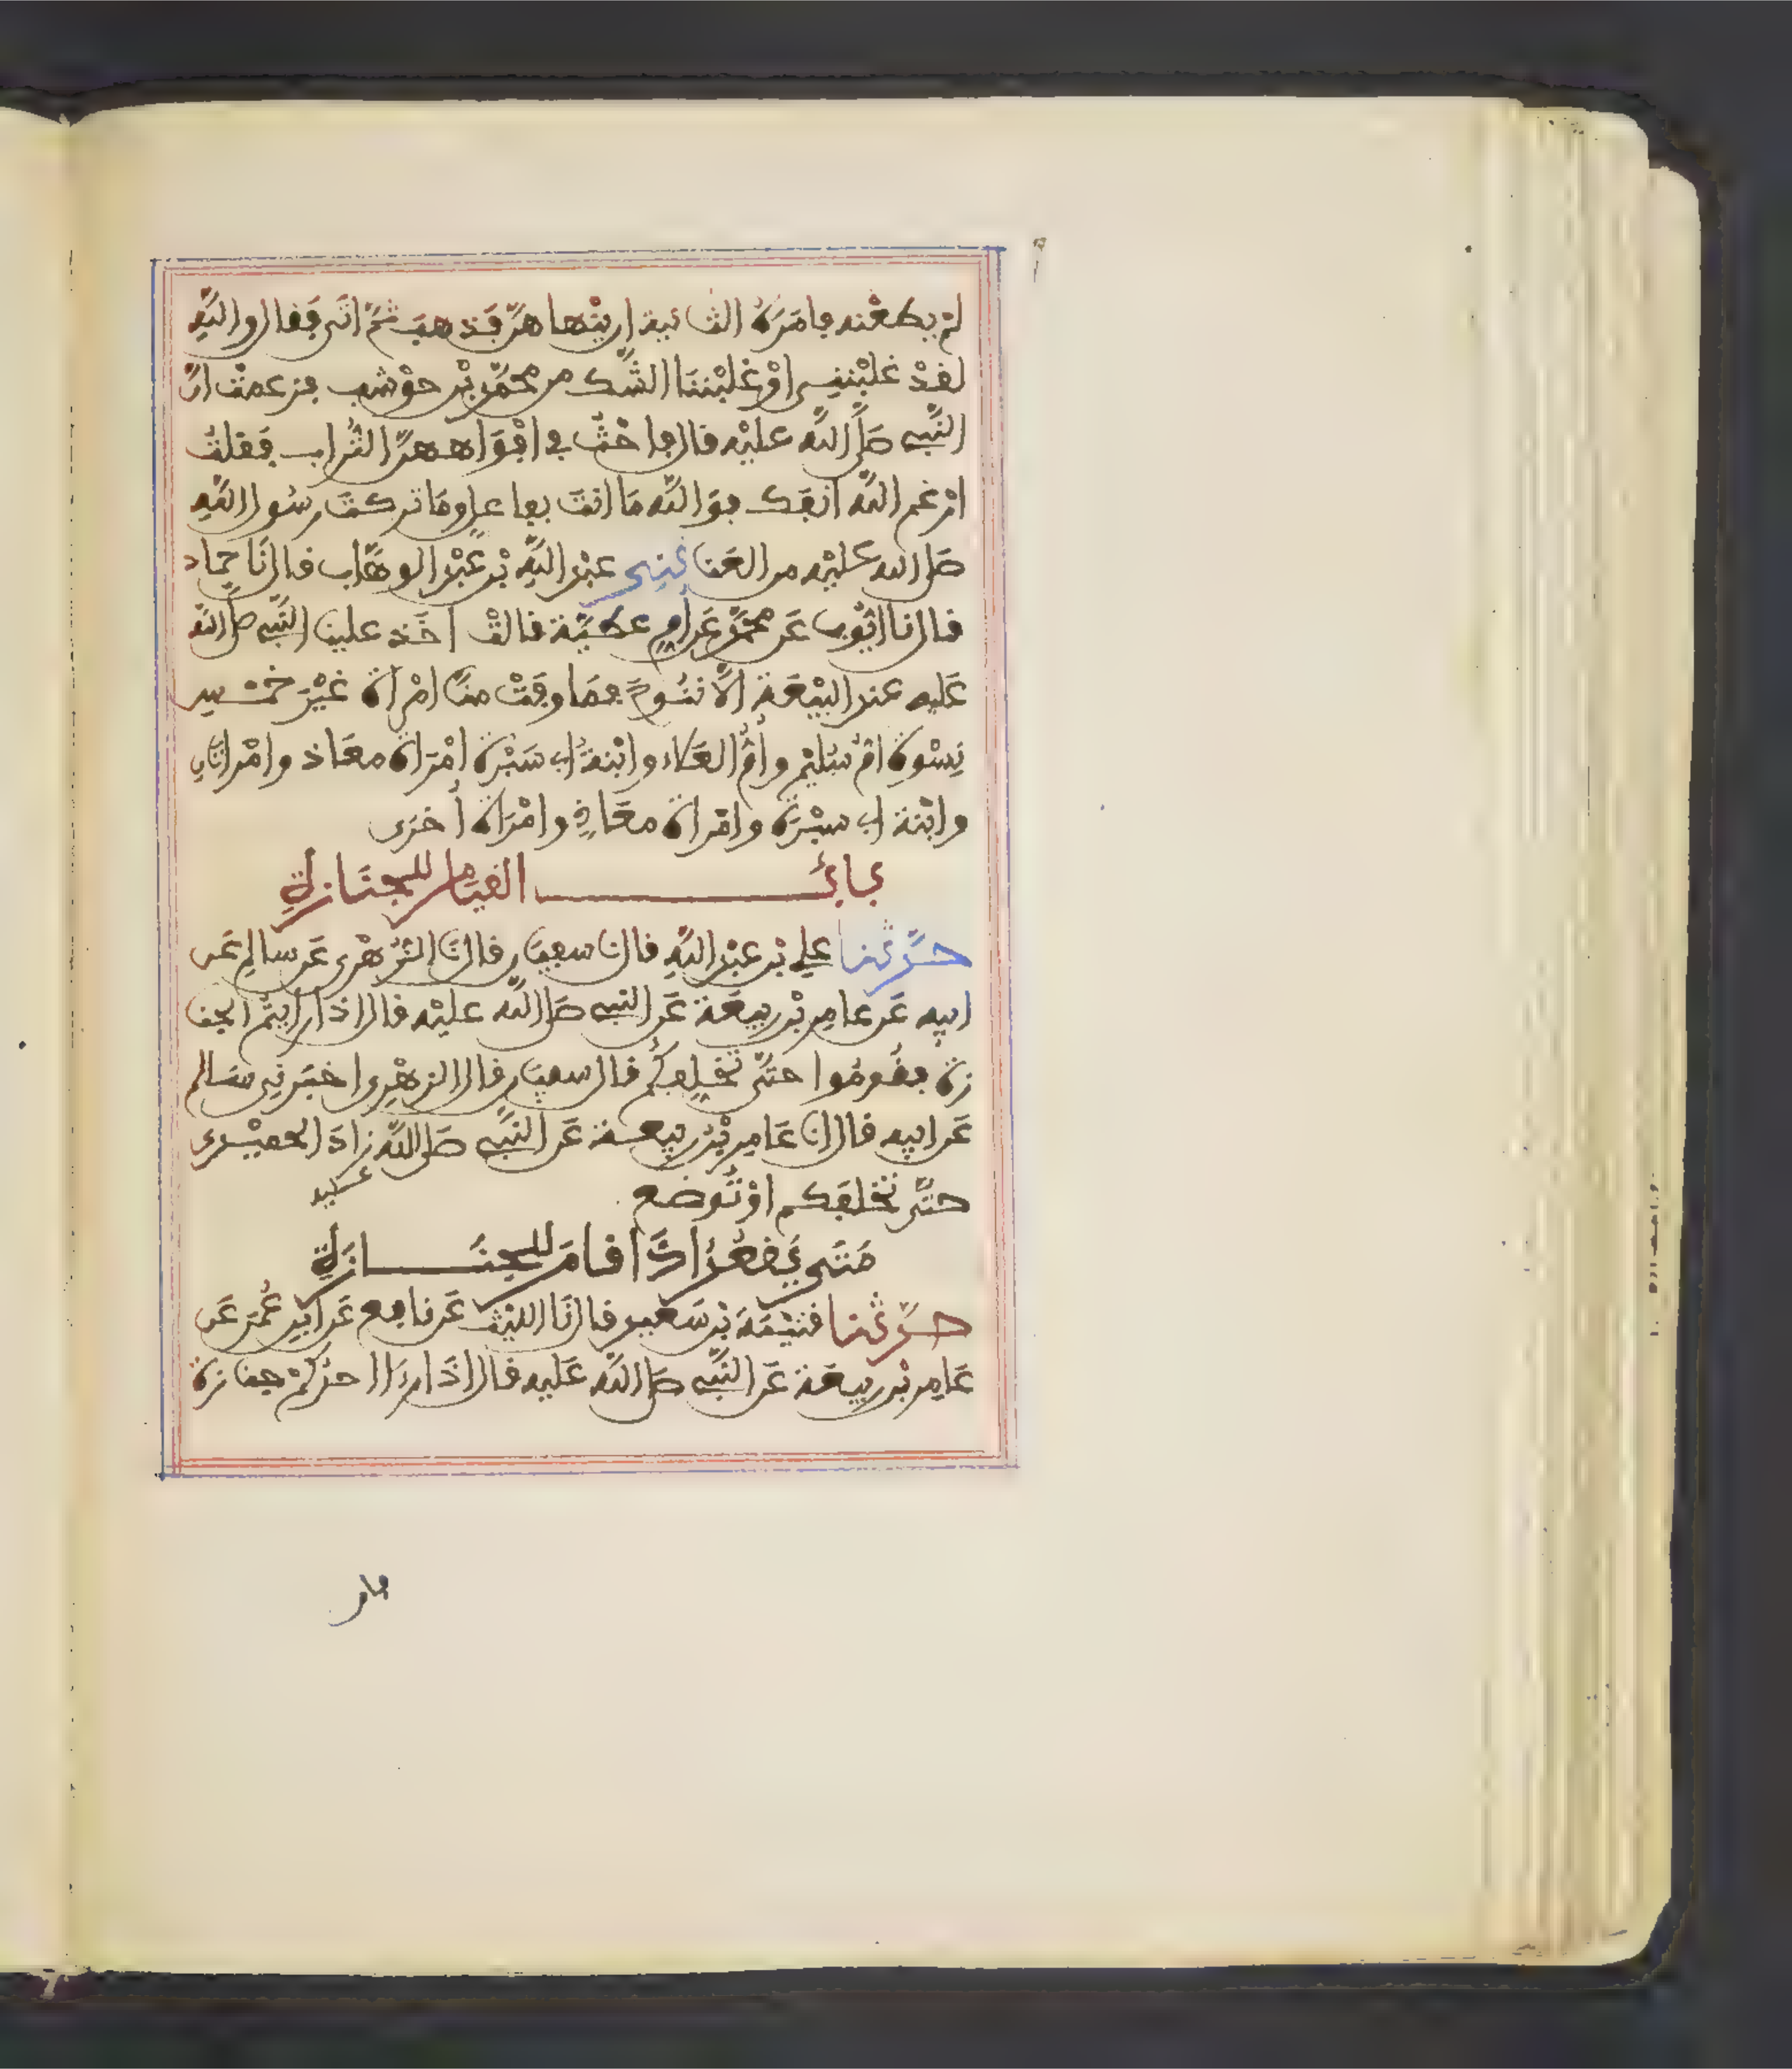 لم يطعنه فامره الثانية ان ينهاهن فذهب ثم اتى فقال والله
لقد غلبنني او غلبننا الشك من محمد بن حوشب فزعمت ان
النبي صلى الله عليه قال فاحث في افواههن التراب فقلت
ارغم الله انفك فوالله ما انت بفاعل وما تركت رسول الله
صلى الله عليه من العنا ثني عبد الله بن عبد الوهاب قال نا حماد
قال نا ايوب عن محمد عن ام عطية قالت اخذ علينا النبي صلى الله
عليه عند البيعة الا ننوح فما وفت منا امراة غير خمس
نسوة ام سليم وام العلاء وابنة ابي سبرة امراة معاذ وامراتان
وابنة ابي سبرة وامراة معاذ وامراة أخرى
باب القيام للجنازة
حدثنا علي بن عبد الله قال نا سفين قال نا الزهري عن سالم عن
ابيه عن عامر بن ربيعة عن النبي صلى الله عليه قال اذا رايتم الجنا
زة فقوموا حتى تخلفكم قال سفين قال الزهري اخبرني سالم
عن ابيه قال انا عامر بن ربيعة عن النبي صلى الله عليه زاد الحميدي
حتى تخلفكم او توضع
متى يقعد اذا قام للجنازة
حدثنا قتيبة بن سعيد قال نا الليث عن نافع عن ابن عمر عن
عامر بن ربيعة عن النبي صلى الله عليه قال اذا راى احدكم جنازة